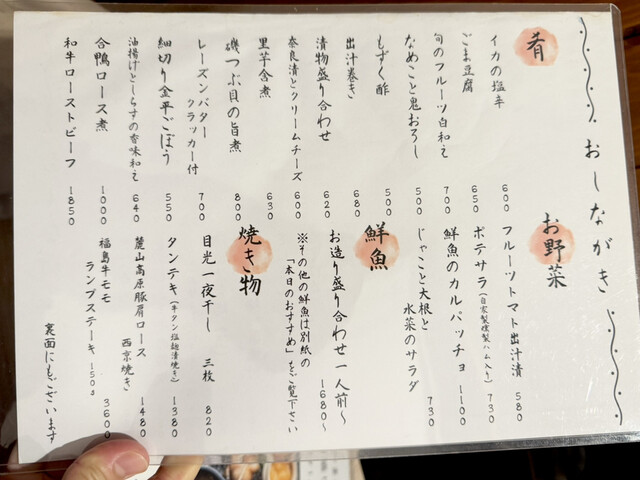 おしながき
肴
イカの塩辛 600
ごま豆腐 650
旬のフルーツ白和え 700
なめこと鬼おろし 500
もずく酢 500
出汁巻き 680
漬物盛り合わせ 620
奈良漬とクリームチーズ 600
里芋含煮 630
磯つぶ貝の旨煮 800
レーズンバター
クラッカー付 700
細切り金平ごぼう 550
油揚げとしらすの香味和え 640
合鴨ロース煮 1000
和牛ローストビーフ 1850
お野菜
フルーツトマト出汁漬 580
ポテサラ(自家製燻製ハム入り) 730
鮮魚のカルパッチョ 1100
じゃこと大根と
水菜のサラダ 730
鮮魚
お造り盛り合わせ一人前〜 1680〜
※その他の鮮魚は別紙の
「本日のおすすめ」をご覧下さい
焼き物
目光一夜干し 三枚 820
タンテキ(牛タン塩麹漬焼き) 1380
麓山高原豚肩ロース
西京焼き 1480
福島牛モモ
ランプステーキ 150g 3600
裏面にもございます